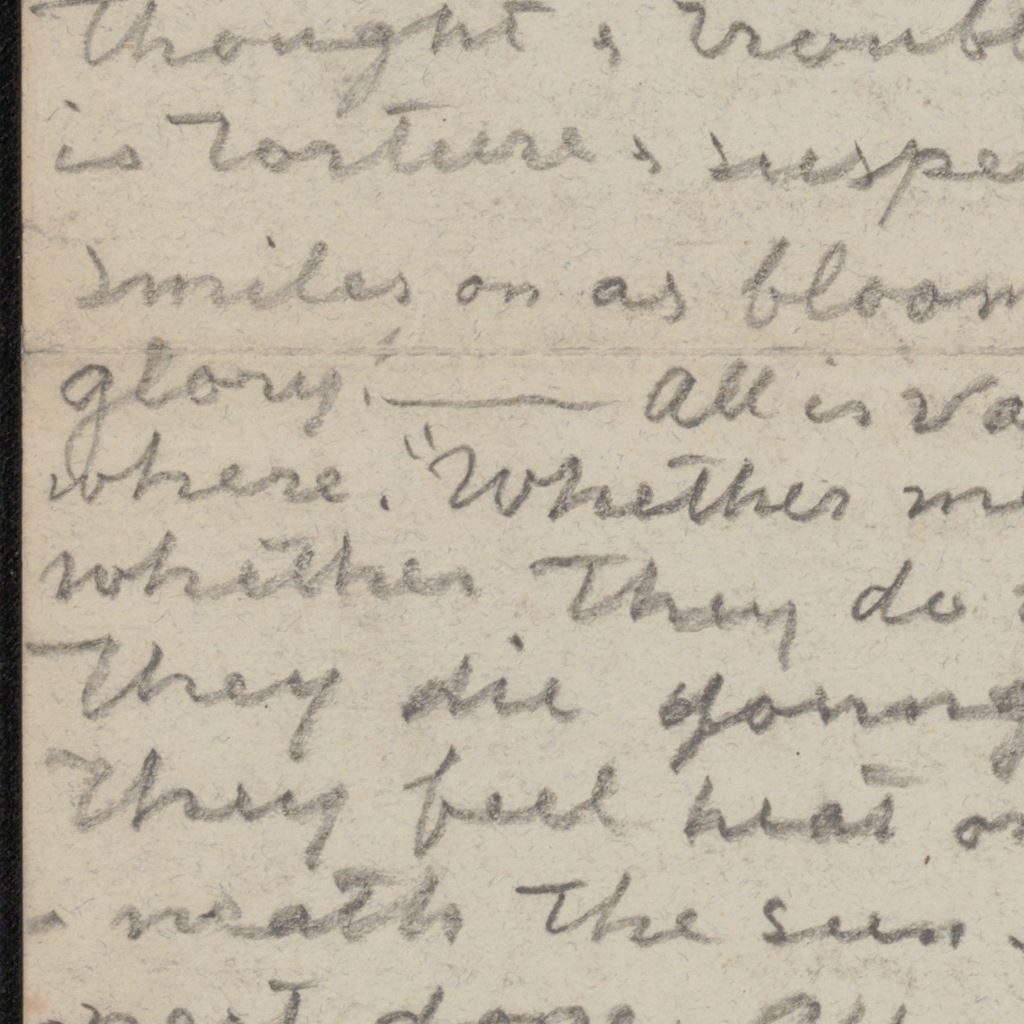 thought & troubl
is torture & suspe
smiles on as bloom
glory!" —— All is va
where. "Whether me
whether they do
They die young
They feel heat or
- neath the sun.
dogs. All